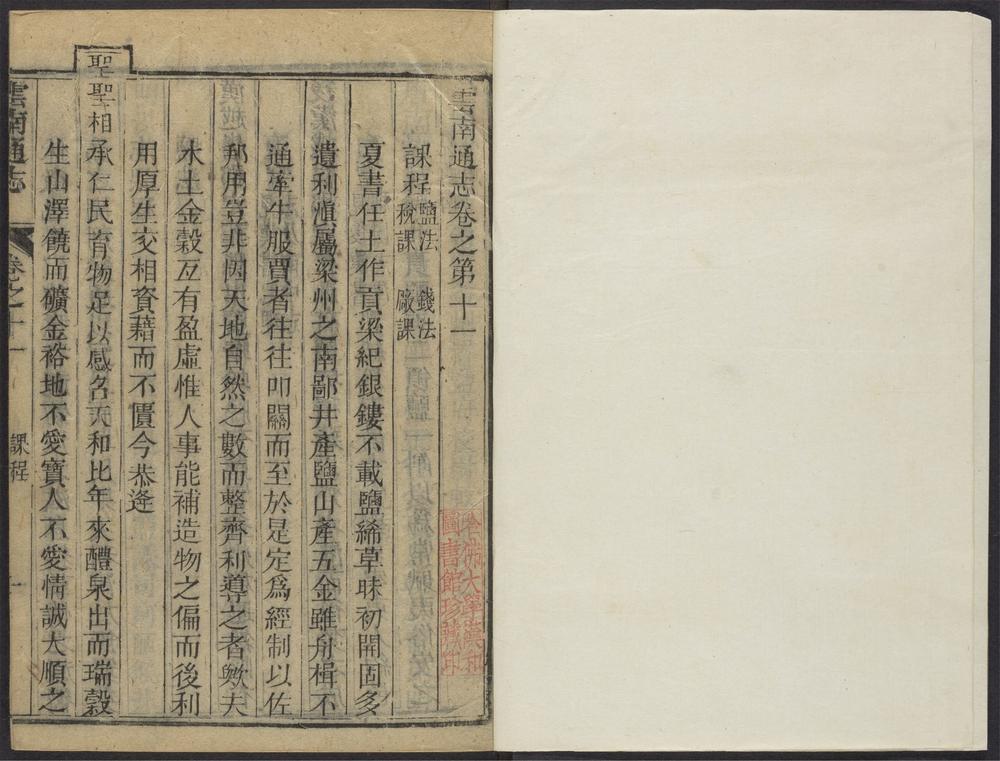 雲南通志卷之第十一
課程 鹽法 錢法
稅課 厰課
夏書任土作貢梁紀銀鏤不載鹽絺草昧初開固多
遺利滇屬梁州之南鄙井產鹽山產五金雖舟楫不
通牽牛服賈者往往叩關而至於是定爲經制以佐
邦用豈非因天地自然之數而整齊利導之者歟夫
水土金穀互有盈虛惟人事能補造物之偏而後利
用厚生交相資藉而不匱今恭逢
聖聖相承仁民育物足以感召天和比年來醴泉出而瑞穀
生山澤饒而礦金裕地不愛寶人不愛情誠大順之
雲南通志
卷之十一
課程
一
哈佛大學漢和
圖書館珍藏印